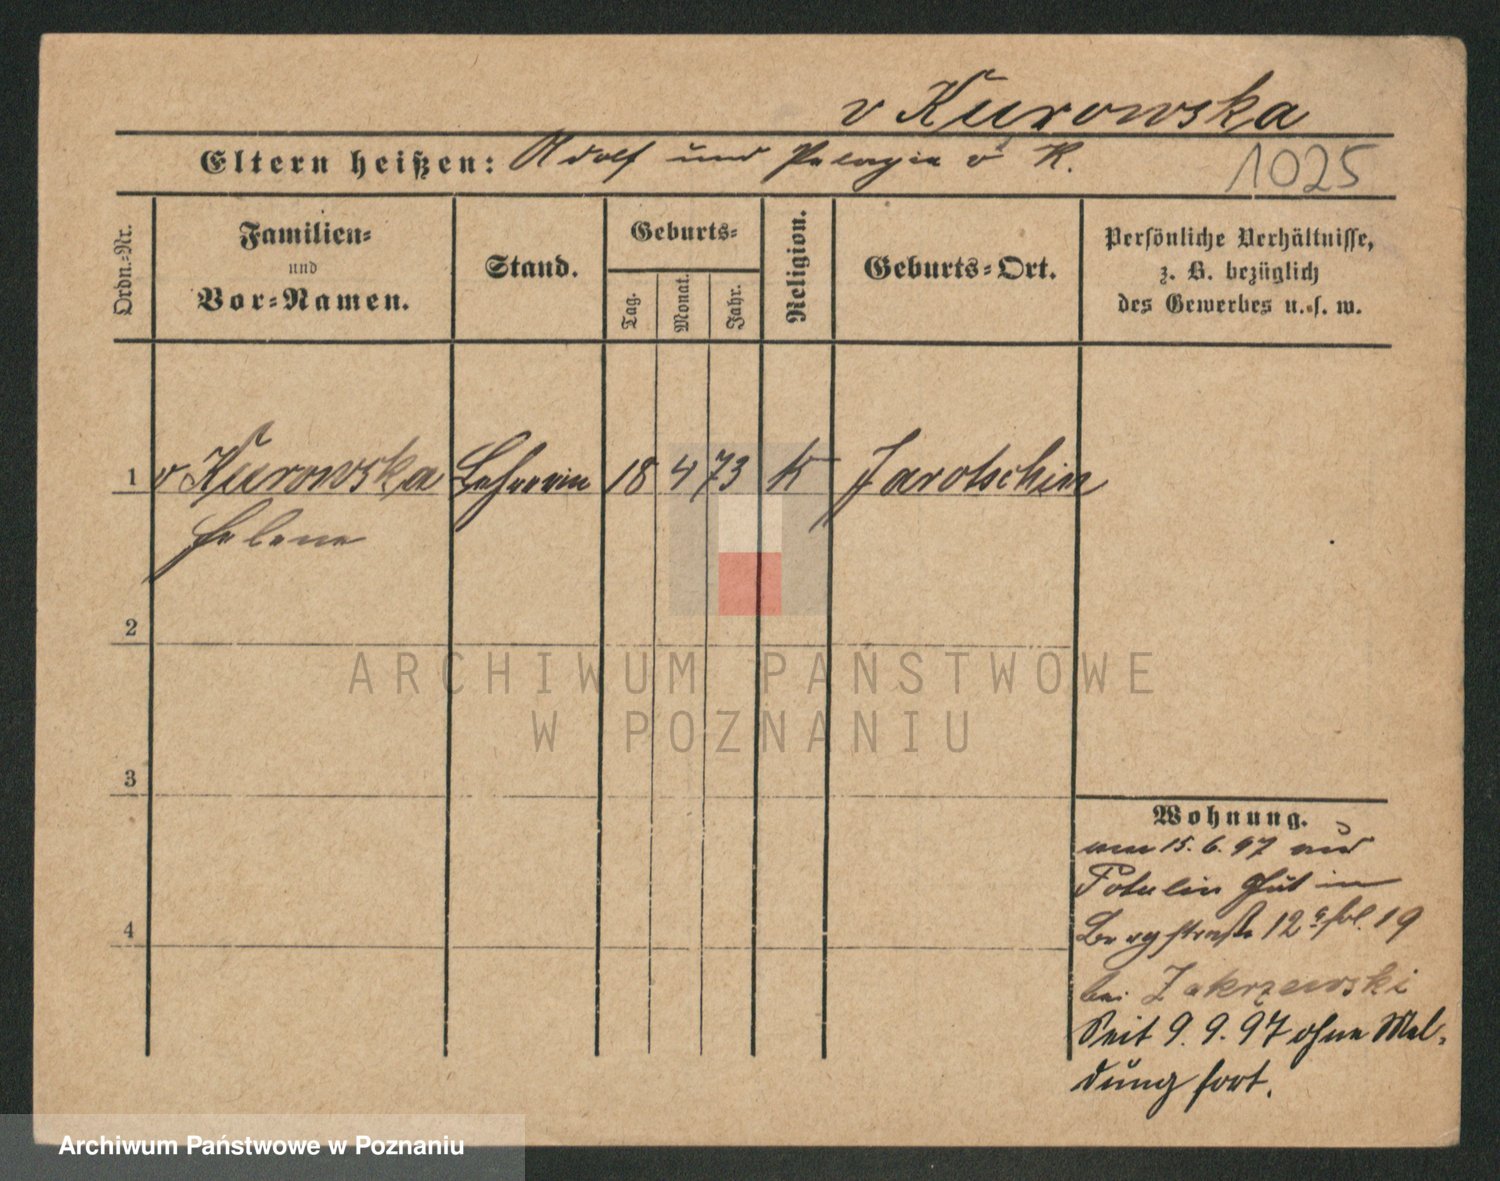 v Kurowska
Eltern heißen: Adolf und Pelagie v K.
1025
Ordn.-Nr.
Familien-
und
Vor-Namen.
Stand.
Geburts-
Tag.
Monat.
Jahr.
Religion.
Geburts-Ort.
Persönliche Verhältnisse,
z. B. bezüglich
des Gewerbes u. s. w.
1 v Kurowska Lehrerin 18 4 73 K Jarotschin
Helene
2
3
4
Wohnung.
am 15. 6. 97 aus
Potulin Gut in
Bergstraße 12 19
bei Zakrzewski
Seit 9. 9. 97 ohne Mel-
dung fort.
ARCHIWUM PAŃSTWOWE
W POZNANIU
Archiwum Państwowe w Poznaniu